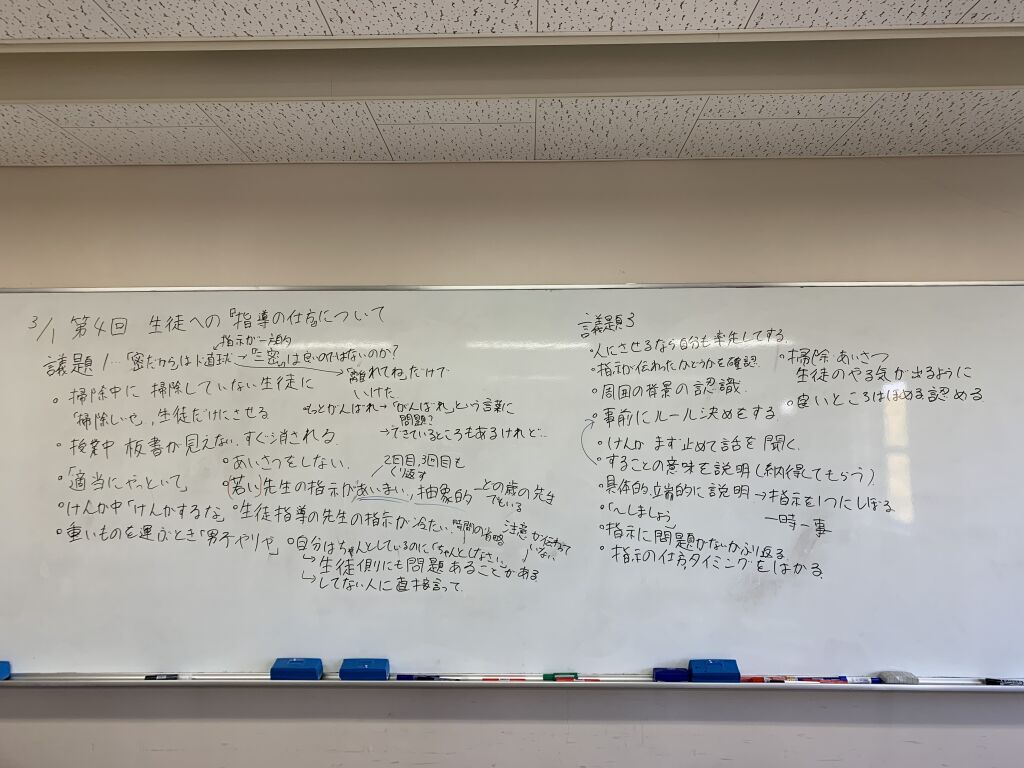 3/1 第4回 生徒への『指導の仕方』について
指示が一方的
議題1…「密だからはド直球→『三密』は良いのではないのか?
「離れてね」だけで
いけた
・掃除中に掃除していない生徒に
「掃除しいや」,生徒だけにさせる
もっとがんばれ→「がんばれ」という言葉に
問題?
→できているところもあるけれど…
・授業中 板書が見えない,すぐ消される
・あいさつをしない
2回目,3回目も
くり返す
・「適当にやっといて」
・若い先生の指示があいまい,抽象的
どの歳の先生
でもいる
・けんか中「けんかするな」
・生徒指導の先生の指示が冷たい,時間の省略
注意が伝わって
いない
・重いものを運ぶとき「男子やりや」
・自分はちゃんとしているのに「ちゃんとしなさい」
↳生徒側にも問題あることがある
↳してない人に直接言って
議題3
・人にさせるなら自分も率先してする
・指示が伝わったかどうかを確認
・周囲の背景の認識
・事前にルール決めをする
・けんか まず止めて話を聞く
・することの意味を説明(納得してもらう)
・具体的,立端的に説明→指示を1つにしぼる
一時一事
・「〜しましょう」
・指示に問題がないかふり返る
・指示の仕方,タイミングをはかる
・掃除・あいさつ
生徒のやる気が出るように
・良いところはほめる,認める